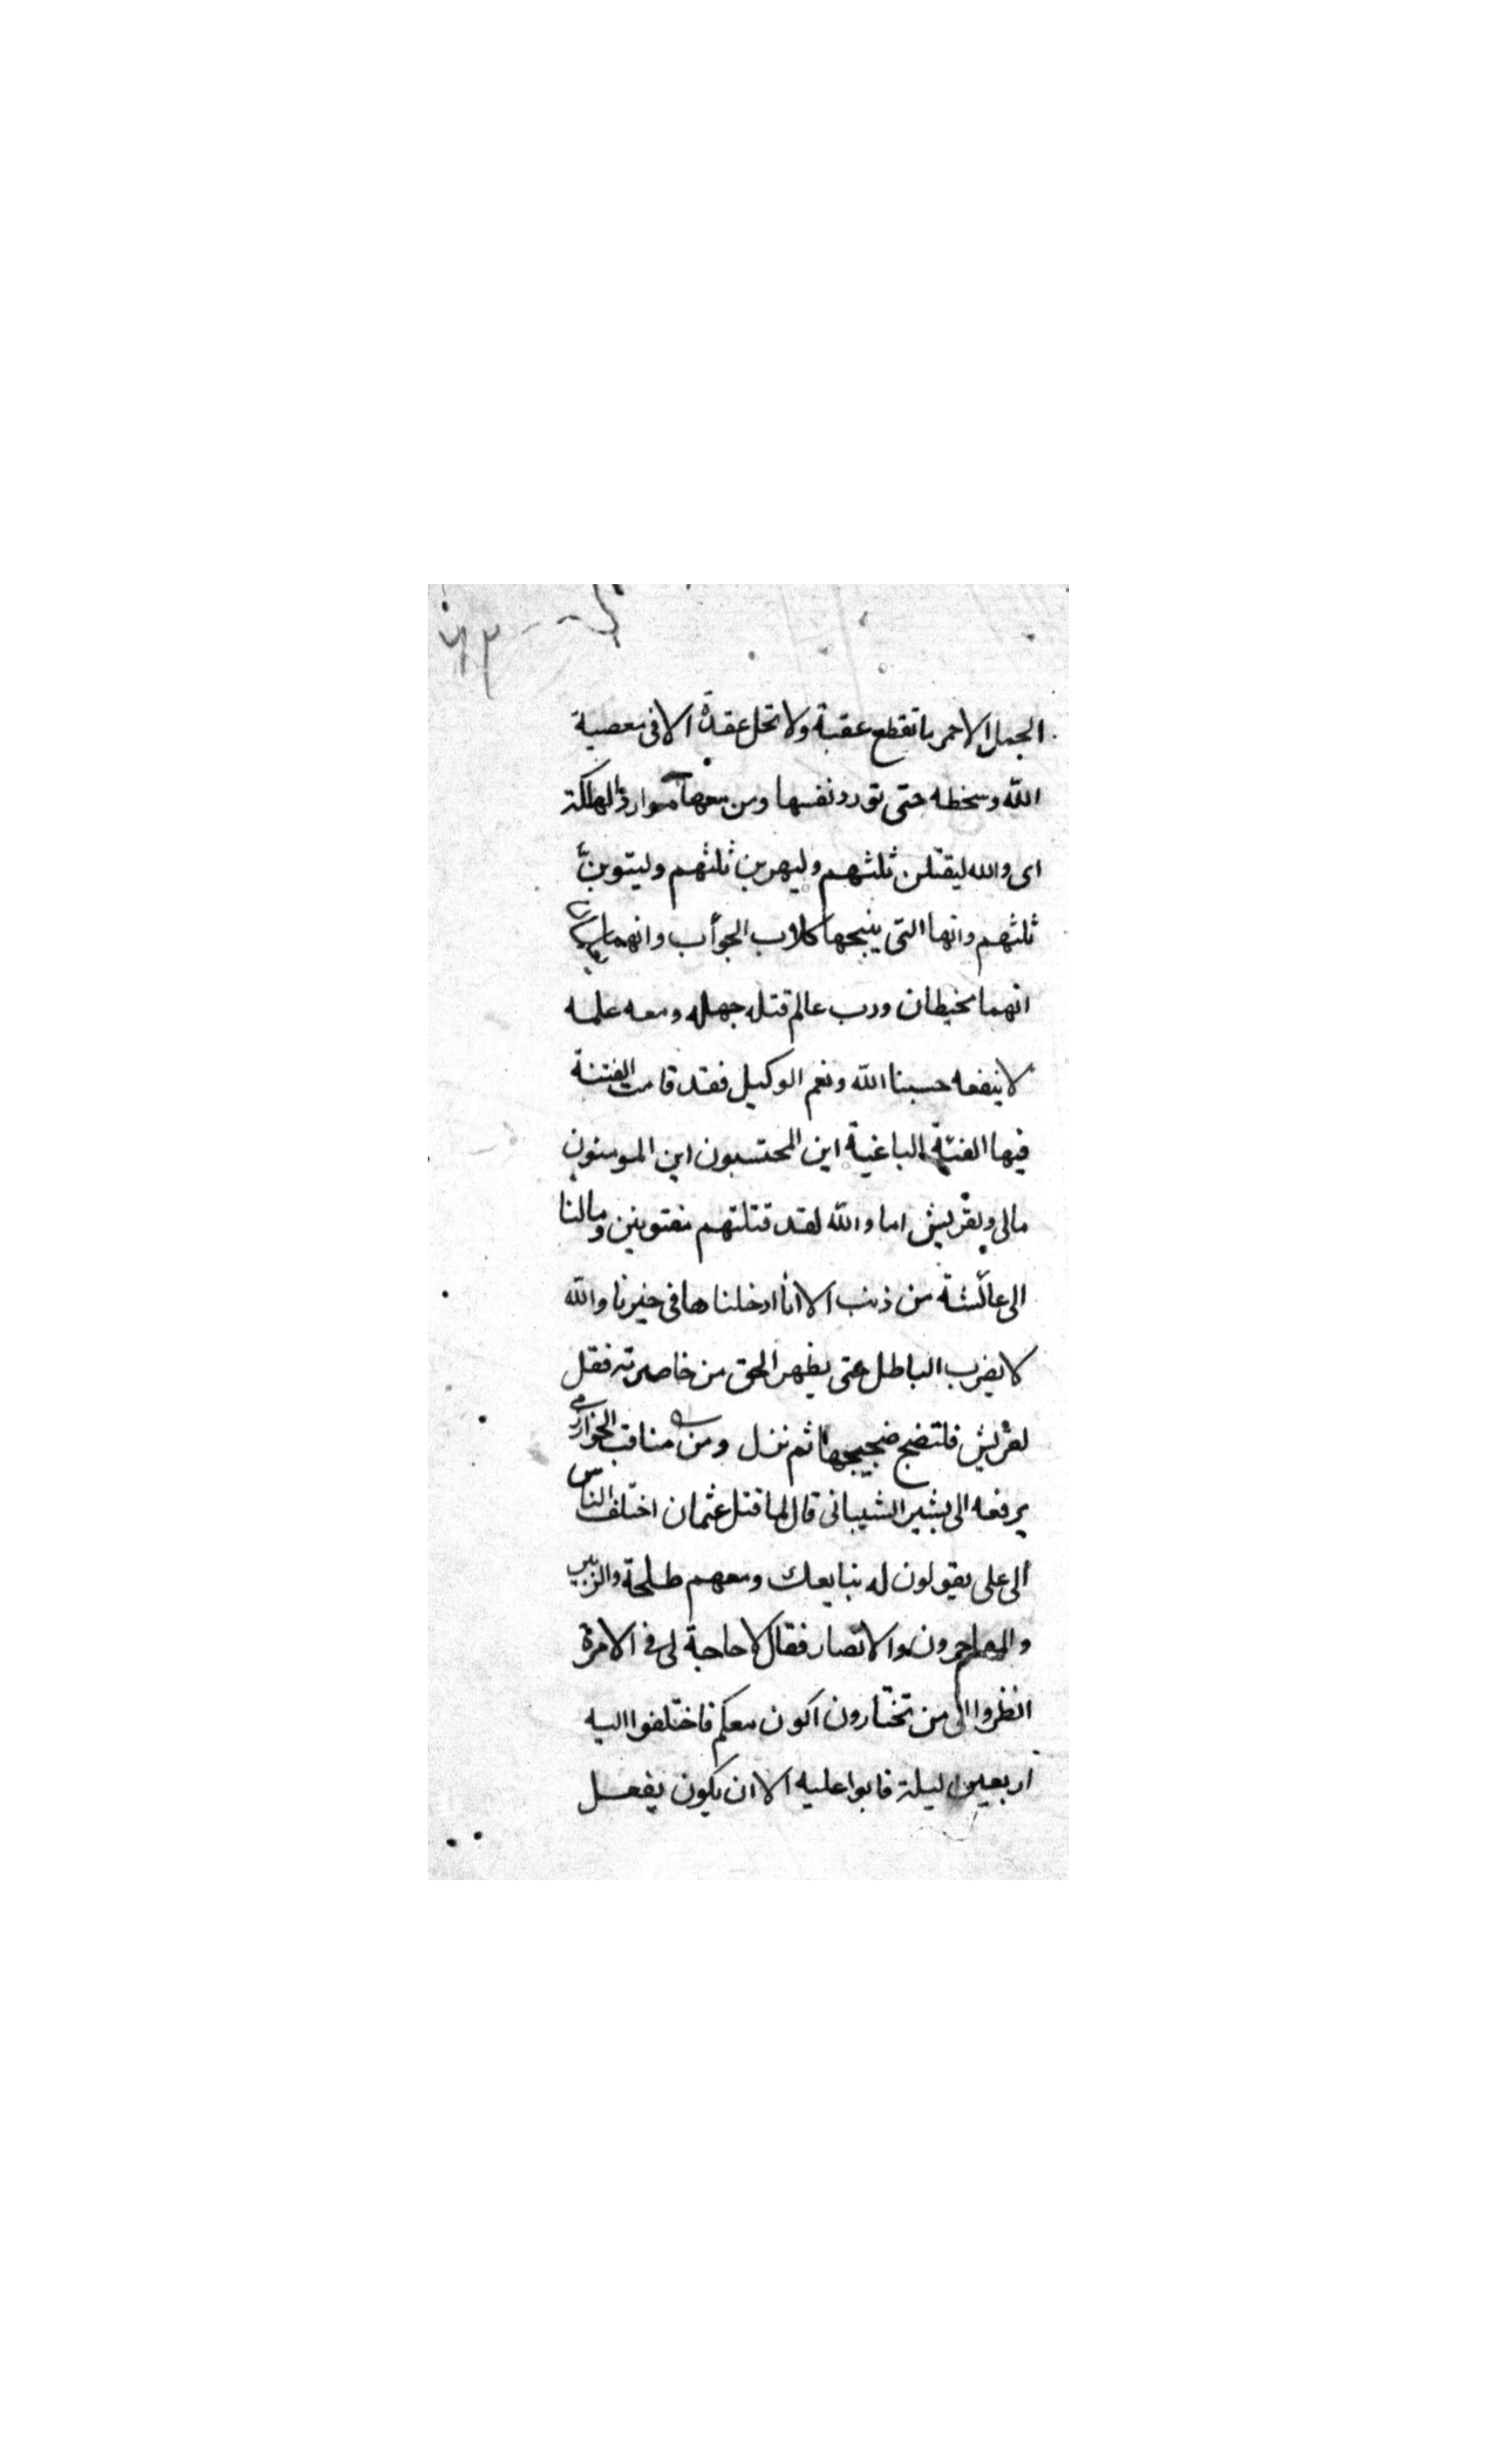 الجمل الاحمر ما تقطع عقبة ولا تحل عقدة الا فى معصية
الله وسخطه حتى تورد نفسها ومن معها موارد الهلكة
اى والله ليقتلن ثلثهم وليهربن ثلثهم وليتوبنّ
ثلثهم وانها التى ينبحها كلاب الحوأب وانهما
انهما مخطيان ورب عالم قتله جهله ومعه علمه
لا ينفعه حسبنا الله ونعم الوكيل فقد قامت الفتنة
فيها الفئة الباغية اين المحتسبون اين المومنون
مالى ولقريش اما والله لقد قتلتهم مفتونين وما لنا
الى عائشة من ذنب الا انا ادخلناها فى حيزنا والله
لا يضرب الباطل حتى يظهر الحق من خاصرته فقل
لقريش فلتضج ضجيجها ثم نزل ومن مناقب الخوارزمى
يرفعه الى بشير الشيبانى قال لما قتل عثمان اختلف الناس
الى على يقولون له نبايعك ومعهم طلحة والزبير
والمهاجرون والانصار فقال لا حاجة لى فى الامرة
انظروا الى من تختارون اكون معكم فاختلفوا اليه
اربعين ليلة فابوا عليه الا ان يكون يفعل